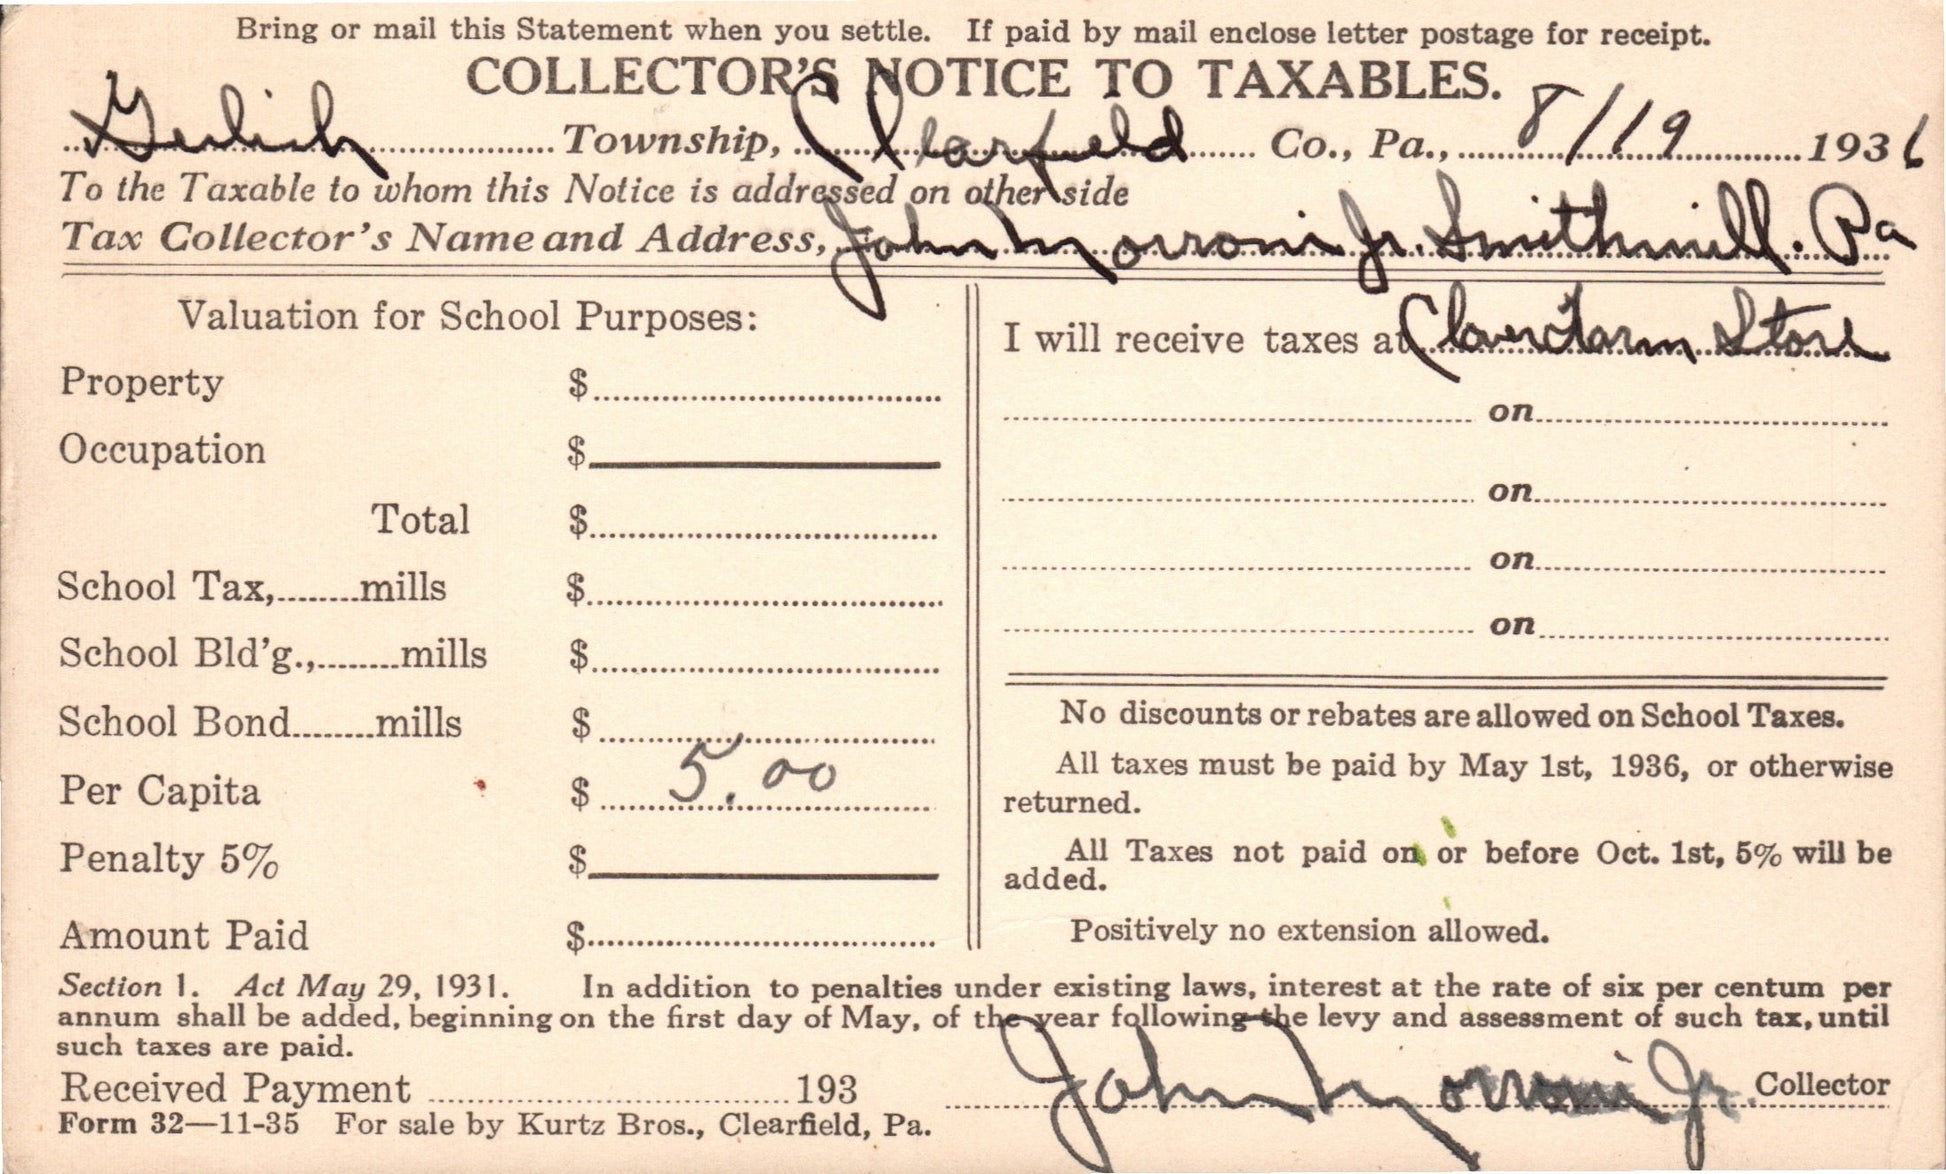 Bring or mail this Statement when you settle. If paid by mail enclose letter postage for receipt.
COLLECTOR'S NOTICE TO TAXABLES.
Gulich Township, Clearfield Co., Pa., 8/19 1936
To the Taxable to whom this Notice is addressed on other side
Tax Collector's Name and Address, John Morroni Jr. Smithmill. Pa
Valuation for School Purposes:
Property $
Occupation $
Total $
School Tax, mills $
School Bld'g., mills $
School Bond mills $
Per Capita $ 5.00
Penalty 5% $
Amount Paid $
I will receive taxes at Clover Farm Store
on
on
on
on
No discounts or rebates are allowed on School Taxes.
All taxes must be paid by May 1st, 1936, or otherwise
returned.
All Taxes not paid on or before Oct. 1st, 5% will be
added.
Positively no extension allowed.
Section 1. Act May 29, 1931. In addition to penalties under existing laws, interest at the rate of six per centum per
annum shall be added, beginning on the first day of May, of the year following the levy and assessment of such tax, until
such taxes are paid.
Received Payment 193
John Morroni Jr. Collector
Form 32—11-35 For sale by Kurtz Bros., Clearfield, Pa.